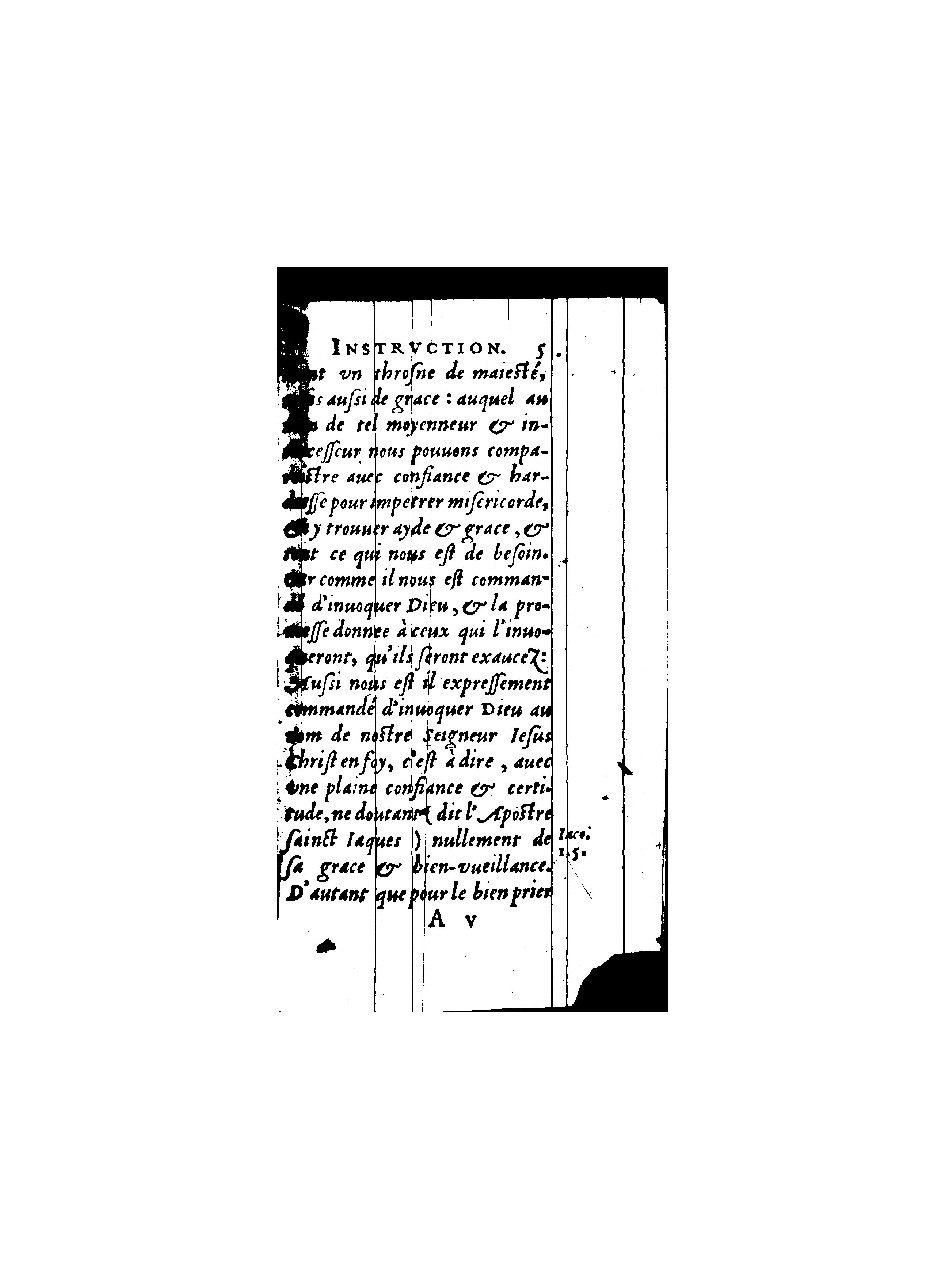 INSTRVCTION. 5
vn throſne de maieſté,
auſsi de grace : auquel au
de tel moyenneur & in-
nous pouuons compa-
auec confiance & har-
pour impetrer miſericorde,
& y trouuer ayde & grace, &
tout ce qui nous eſt de beſoin.
Car comme il nous eſt comman-
dé d'inuoquer Dieu, & la pro-
meſſe donnee à ceux qui l'inuo-
queront, qu'ils ſeront exaucez:
Auſsi nous eſt il expreſſement
commandé d'inuoquer Dieu au
nom de noſtre Seigneur Ieſus
Chriſt en foy, c'eſt à dire, auec
vne plaine confiance & certi-
tude, ne doutant ( dit l'Apoſtre
ſainct Iaques ) nullement de
ſa grace & bien-vueillance.
D'autant que pour le bien prier
Iaco.
1.5.
A v